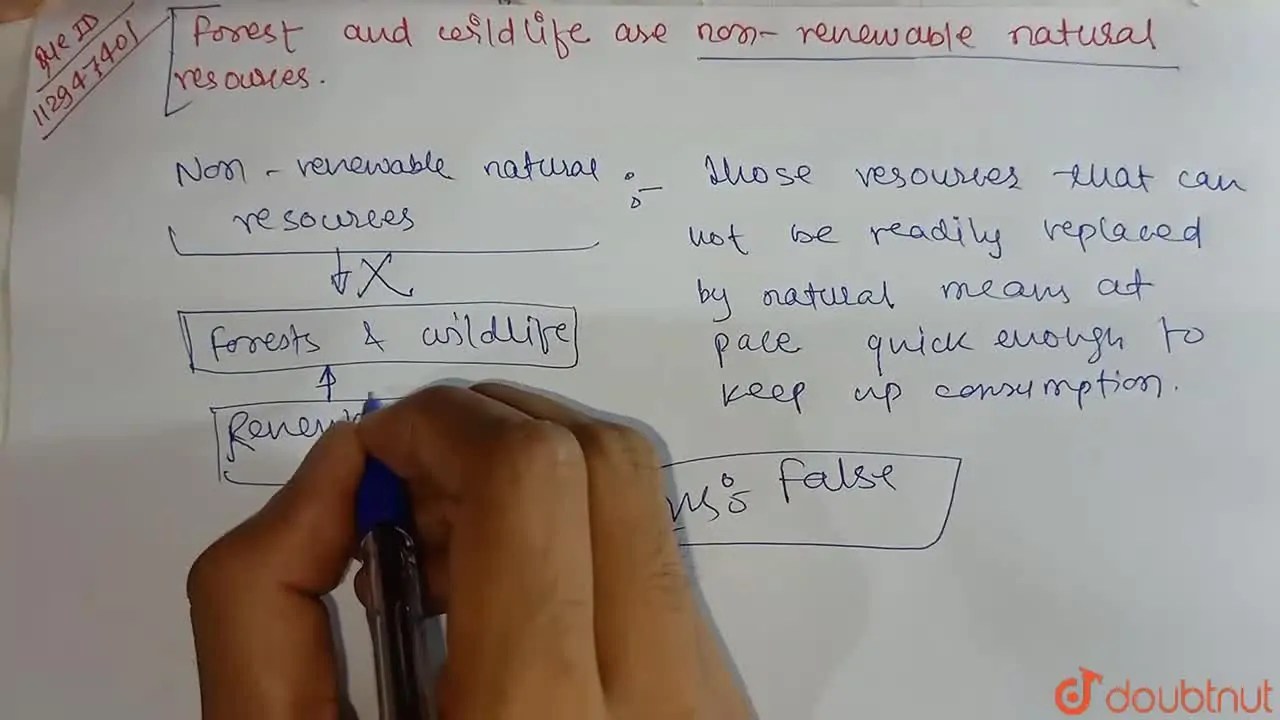 Que ID
112947401
Forest and wildlife are non-renewable natural
resources.
Non-renewable natural :-
resources
Those resources that can
not be readily replaced
by natural means at
pace quick enough to
keep up consumption.
X
Forests & wildlife
False
doubtnut